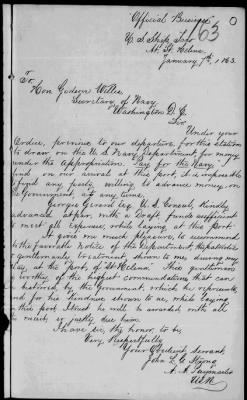 "Official Business"
63
U. S. Ship,
At St Helena
January 7th, 1863.
To,
Hon Gideon Welles
Secretary of Navy
Washington D. C.
Sir
Under your
Orders, previous to our departure, for this station
to draw on the U. S. Navy Department, for money
under the Appropriation, "Pay for the Navy"
find on our arrival at this port, it is impossible
to find any party, willing to advance money, on
the Government, at any time.
Georgie Gerard Esq. U. S. Consul, Kindly
advanced at par, with a Draft, funds sufficient
to meet all expenses, while laying at this port
It gives me much pleasure, to recommend
to the favorable Notice of the Department,
gentlemanly treatment, shown to me, during my
stay, at the "Port, of St Helena". This gentleman
is worthy, of the highest commendations, that can
be bestowed, by the Government, which he represents,
and for his kindness shown to me, while laying
in this port I trust he will be awarded, with all
the merit, so justly due him.
I have, sir, the honor, to be,
Very Respectfully
Your Obedient Servant,
John
A. A. Paymaster
U.S.N.